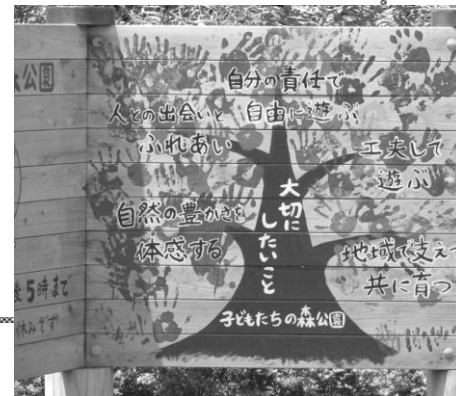 公園
後5時まで
休みです
自分の責任で
自由に遊ぶ
人との出会いと
ふれあい
工夫して
遊ぶ
自然の豊かさを
体感する
大切に
したいこと
地域で支えて
共に育つ
子どもたちの森公園